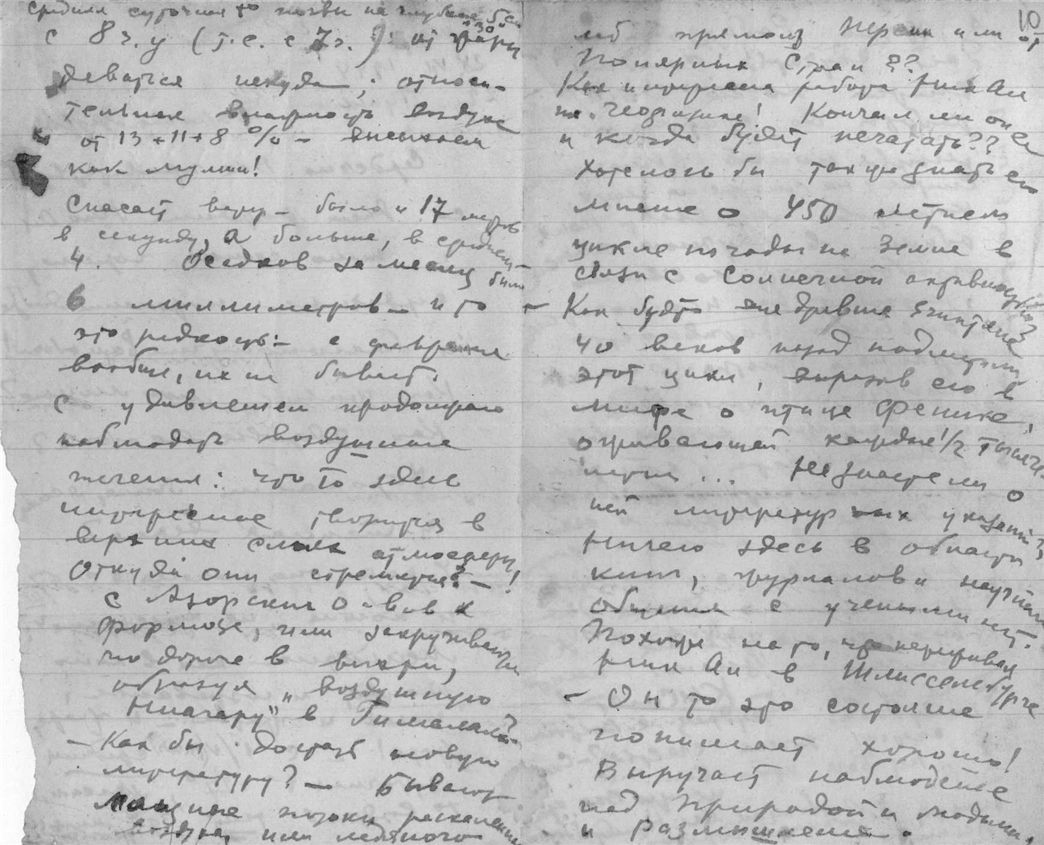 средняя суточная t° почвы на глубине
с 8 ч. у (т.е. с 7 ч.): от жары
деваться некуда; относи-
тельная влажность воздуха
от 13 + 11 + 8 % – высыхаем
как мумии!
Спасает ветер – было и 17 метров
в секунду, а больше, в среднем
4. Осадков за месяц было
6 миллиметров – и то
это редкость: с февраля
вообще, их не бывает.
С удивлением продолжаю
наблюдать воздушные
течения: что то здесь
интересное творится в
верхних слоях атмосферы!
Откуда они стремятся? –
с Азорских о-вов к
Формозе, или закручиваются
по дороге в вихри,
образуя „воздушную
Ниагару" в Гималаях?
– Как бы достать новую
литературу? – Бывают
мощные потоки раскаленного
воздуха, или ледяного
10
прямо из Персии или от
Полярных Стран ??
Как интересна работа Ник Ал
по геофизике! Кончил ли он ее
и когда будет печатать??
Хотелось бы также знать его
мнение о 450 летнем
цикле погоды на Земле в
связи с Солнечной активностью
– Как будто еще древние Египтяне
40 веков назад подметили
этот цикл, выразив его в
мифе о птице Феникс,
оживающей каждые 1/2 тысячи
лет... Не знаете ли о
ней литературных указаний?
Ничего здесь в области
книг, журналов и научного
общения с учеными нет.
Похоже на то, что переживал
Ник Ал в Шлиссельбурге
– Он то это состояние
понимает хорошо!
Выручает наблюдение
над Природой и людьми,
и размышление.